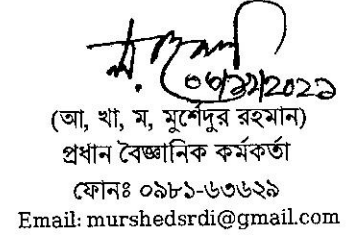 ০৬/১২/২০২১
(আ, খা, ম, মুর্শেদুর রহমান)
প্রধান বৈজ্ঞানিক কর্মকর্তা
ফোনঃ ০৯৮১-৬৩৬২৯
Email: murshedsrdi@gmail.com